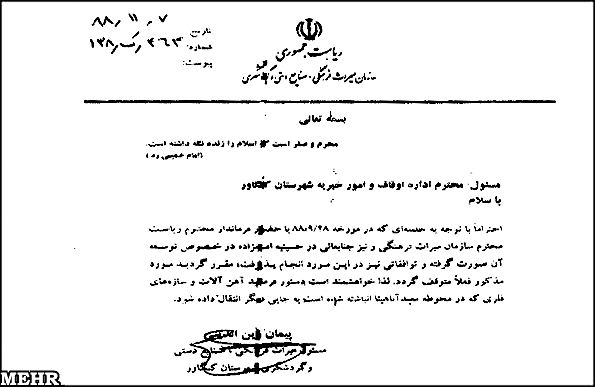 ریاست جمهوری
سازمان میراث فرهنگی، صنایع دستی و گردشگری
تاریخ: ۸۸٫۱۱٫۷
شماره:
پیوست:
بسمه تعالی
محرم و صفر است که اسلام را زنده نگه داشته است.
(امام خمینی ره)
مسئول محترم اداره اوقاف و امور خیریه شهرستان کنگاور
با سلام
احتراماً با توجه به جلسه‌ای که در مورخه ۸۸/۰۹/۲۸ با حضور فرماندار محترم ریاست
محترم سازمان میراث فرهنگی و نیز جنابعالی در حسینیه امامزاده در خصوص توسعه
آن صورت گرفته و توافقاتی نیز در این مورد انجام پذیرفت، مقرر گردید مورد
مذکور فعلاً متوقف گردد. لذا خواهشمند است دستور فرمایید آهن آلات و سازه‌های
فلزی که در محوطه معبد آناهیتا انباشته شده است به جایی دیگر انتقال داده شود.
پیمان
مسئول میراث فرهنگی، صنایع دستی
و گردشگری شهرستان کنگاور
MEHR